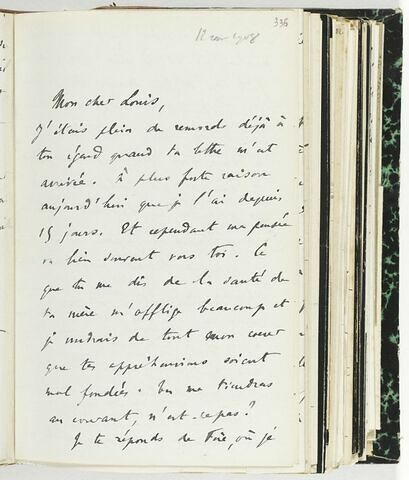 336
12 nov 1908
Mon cher Louis,
J'étais plein de remords déjà à
ton égard quand ta lettre m'est
arrivée. à plus forte raison
aujourd'hui que je l'ai depuis
15 jours. Et cependant ma pensée
va bien souvent vers toi. Ce
que tu me dis de la santé de
ta mère m'afflige beaucoup et
je voudrais de tout mon coeur
que tes appréhensions soient
mal fondées. tu me tiendras
au courant, n'est-ce pas?
Je te réponds de Fère, où je